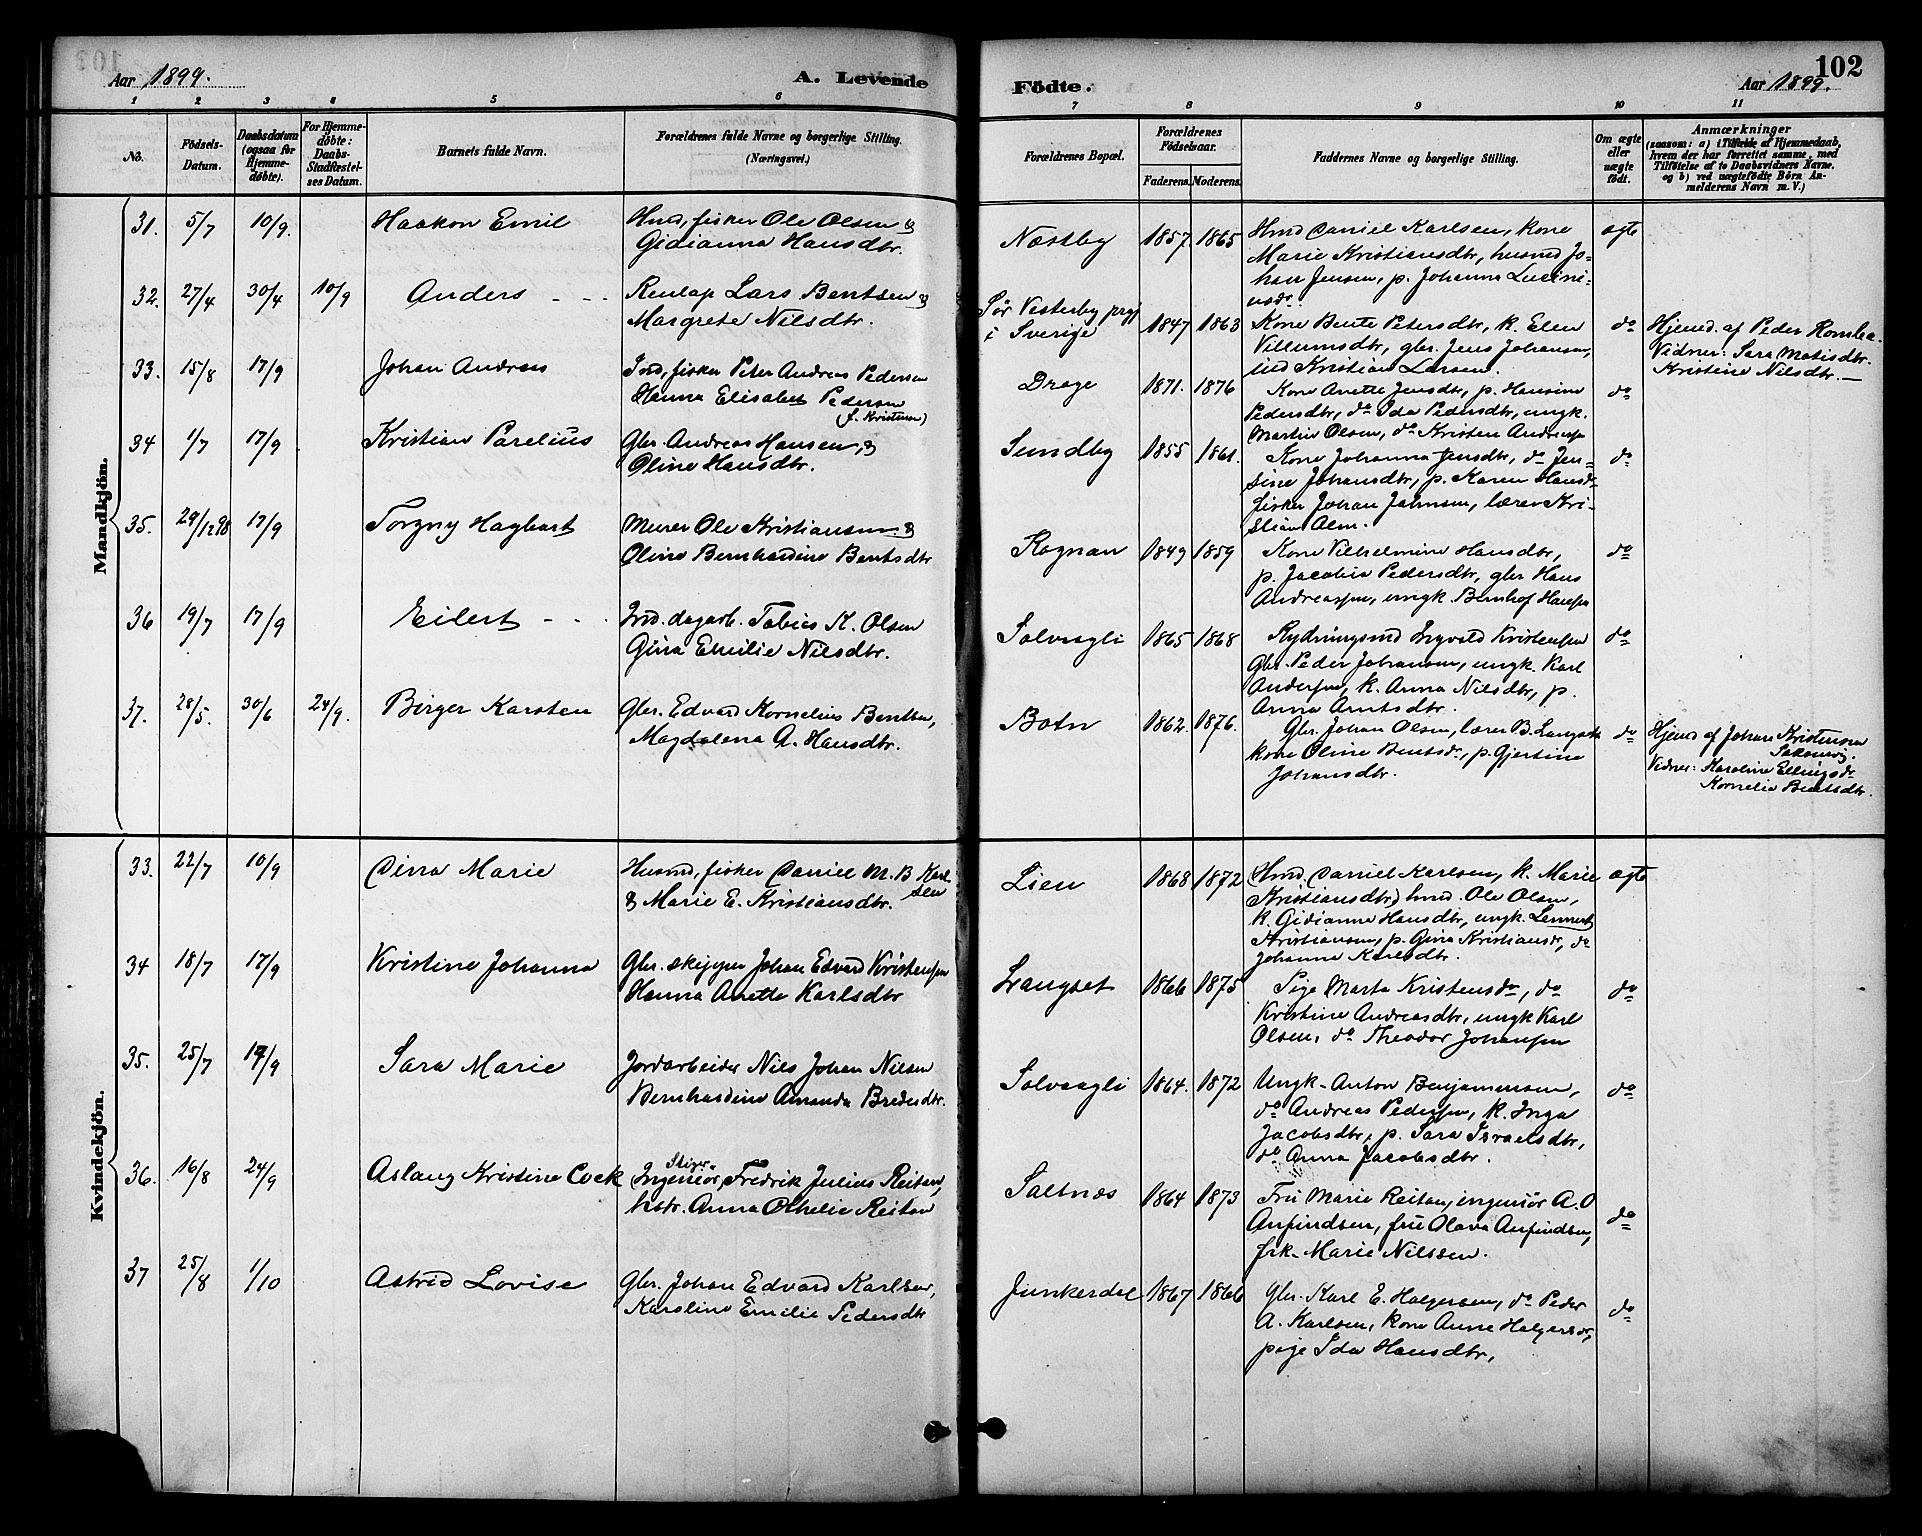 Aar 1899.
A. Levende
1 2 3 4 5 6
No.
Födsels-
Datum.
Daabsdatum
(ogsaa for
Hjemme-
döbte).
For Hjemme-
döbte:
Daabs-
Stadfæstel-
ses Datum.
Barnets fulde Navn.
Forældrenes fulde Navne og borgerlige Stilling.
(Næringsvei.)
Mandkjön.
31. 5/7 10/9. Haakon Emil Husd, fisker Ole Olsen &
Gidianna Hansdtr.
32. 27/4 30/4 10/9 Anders Renlap Lars Bentsen &
Margrete Nilsdtr.
33. 15/8 17/9 Johan Andreas Ind, fisker Peter Andreas Pedersen
Hanna Elisabet Pedersen
(f. Kristensen)
34 1/7 17/9 Kristian Parelius Gbr. Andreas Hansen, &
Oline Hansdtr.
35. 29/12 98 17/9 Torgny Hagbart Murer Ole Kristiansen &
Oline Bernhardine Bentsdtr
36 19/7 17/9 Eilert Ind. dagarb. Tobias K. Olsen
Gina Emilie Nilsdtr.
37. 28/5. 30/6 24/9. Birger Karsten Gbr. Edvard Kornelius Bentsen,
Magdalena A. Hansdtr.
Kvindekjön.
33. 22/7 10/9 Dina Marie Husmd, fisker Daniel M. B Karl-
sen
& Marie E. Kristiansdtr.
34 18/7 17/9 Kristine Johanna Gbr. skipper Johan Edvard Kristensen
Hanna Anette Karlsdtr
35. 25/7 17/9 Sara Marie Jordarbeider Nils Johan Nilsen
Bernhardine Amanda Bredesdtr.
36. 16/8 24/9 Aslaug Kristine Cock Stiger
Ingeniör, Fredrik Julius Reitan,
hstr. Anna Othelie Reitan
37 25/8 1/10 Astrid Lovise Gbr. Johan Edvard Karlsen,
Karoline Emilie Pedersdtr
102
Födte.
Aar 1899.
7 8 9 10 11
Forældrenes Bopæl.
Forældrenes
Födselsaar.
Faderens. Moderens.
Faddernes Navne og borgerlige Stilling.
Om ægte
eller
uægte
födt.
Anmærkninger
(saasom: a) i Tilfælde af Hjemmedaab,
hvem der har forrettet samme, med
Tilföielse af to Daabsvidners Navne.
og b) ved uægtefödte Börn An-
melderens Navn m. V.)
Næstby 1857. 1865 Husd Daniel Karlsen, kone ægte
Marie Kristiansdtr, husmd Jo-
han Jensen, p. Johanna Lucini-
usdr.
Sör Vesterby prgj
i Sverige 1847 1863 Kone Bente Petersdtr, k. Elen do
Villumsdtr, gbr. Jens Johansen,
ind Kristian Larsen.
Hjemd. af Peder
Vidner: Sara Matisdtr.
Kristine Nilsdtr.
Drage 1871. 1876 Kone Anette Jensdtr, p. Hansine do
Pedersdtr, do Ida Pedersdtr, ungk.
Martin Olsen, do Kristen Andreassen
Sundby 1855 1861. Kone Johanna Jensdtr, do Jen- do
sine Johansdtr, p. Karen Hansdr
fisker Johan Johnsen, lærer Kri-
stian Alm.
Rognan 1849 1859 Kone Vilhelmine Hansdtr, do
p. Jacobia Pedersdtr, gbr Hans
Andreassen, ungk. Bernhof Hansen
Solvaagli 1865 1868 Rydningsmd Ingvald Kristensen do
Gbr. Peder Johansen, ungk. Karl
Andersen, k. Anna Nilsdtr, p.
Anna Arntsdtr.
Botn 1862. 1876. Gbr. Johan Olsen, lærer B. Langseth do
kone Oline Bentsdr, p. Gjertine
Johansdtr.
Hjemd af Johan Kristensen
Saksenvig.
Vidner: Karoline Ellingsdr
Kornelia Bentsdtr.
Lien 1868 1872 (Husd. Daniel Karlsen, k. Marie ægte
Kristiansdtr) husd. Ole Olsen,
k. Gidianna Hansdtr, ungk. Lennert
Kristiansen, p. Gina Kristiansdr, do
Johanna Karlsdtr.
Langset 1866 1875 Pige Marta Kristensdr, do do
Kristine Andreasdtr, ungk Karl
Olsen, do Theodor Johansen
Solvaagli 1864. 1872 Ungk. Anton Benjaminsen, do
do Andreas Pedersen, k. Inga
Jacobsdtr, p. Sara Israelsdtr,
do Anna Jacobsdtr.
Saltnes 1864 1873 Fru Marie Reitan, ingeniör A. O do
Anfindsen, fru Olava Anfindsen,
frk. Marie Nilssen.
Junkerdal 1867 1866 Gbr. Karl E. Holgersen, do Peder do
A. Karlsen, kone Anne Holgersdr,
pige Ida Hansdtr,